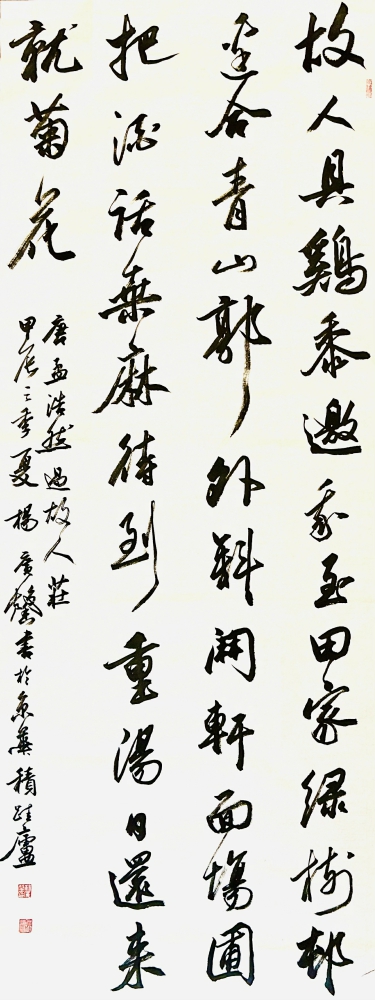 故人具鷄黍邀我至田家绿樹邨
邊合青山郭外斜開軒面場圃
把酒話桑麻待到重陽日還来
就菊花
唐孟浩然過故人莊
甲辰之季夏楊廣馨書於京華積跬廬